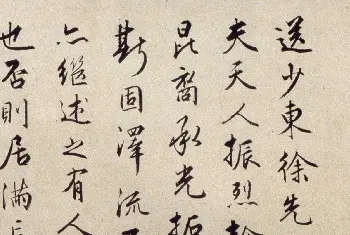 送少東徐先
夫天人振烈於
昆裔承光振
斯固澤流
亦繼述之有人
也否則居滿